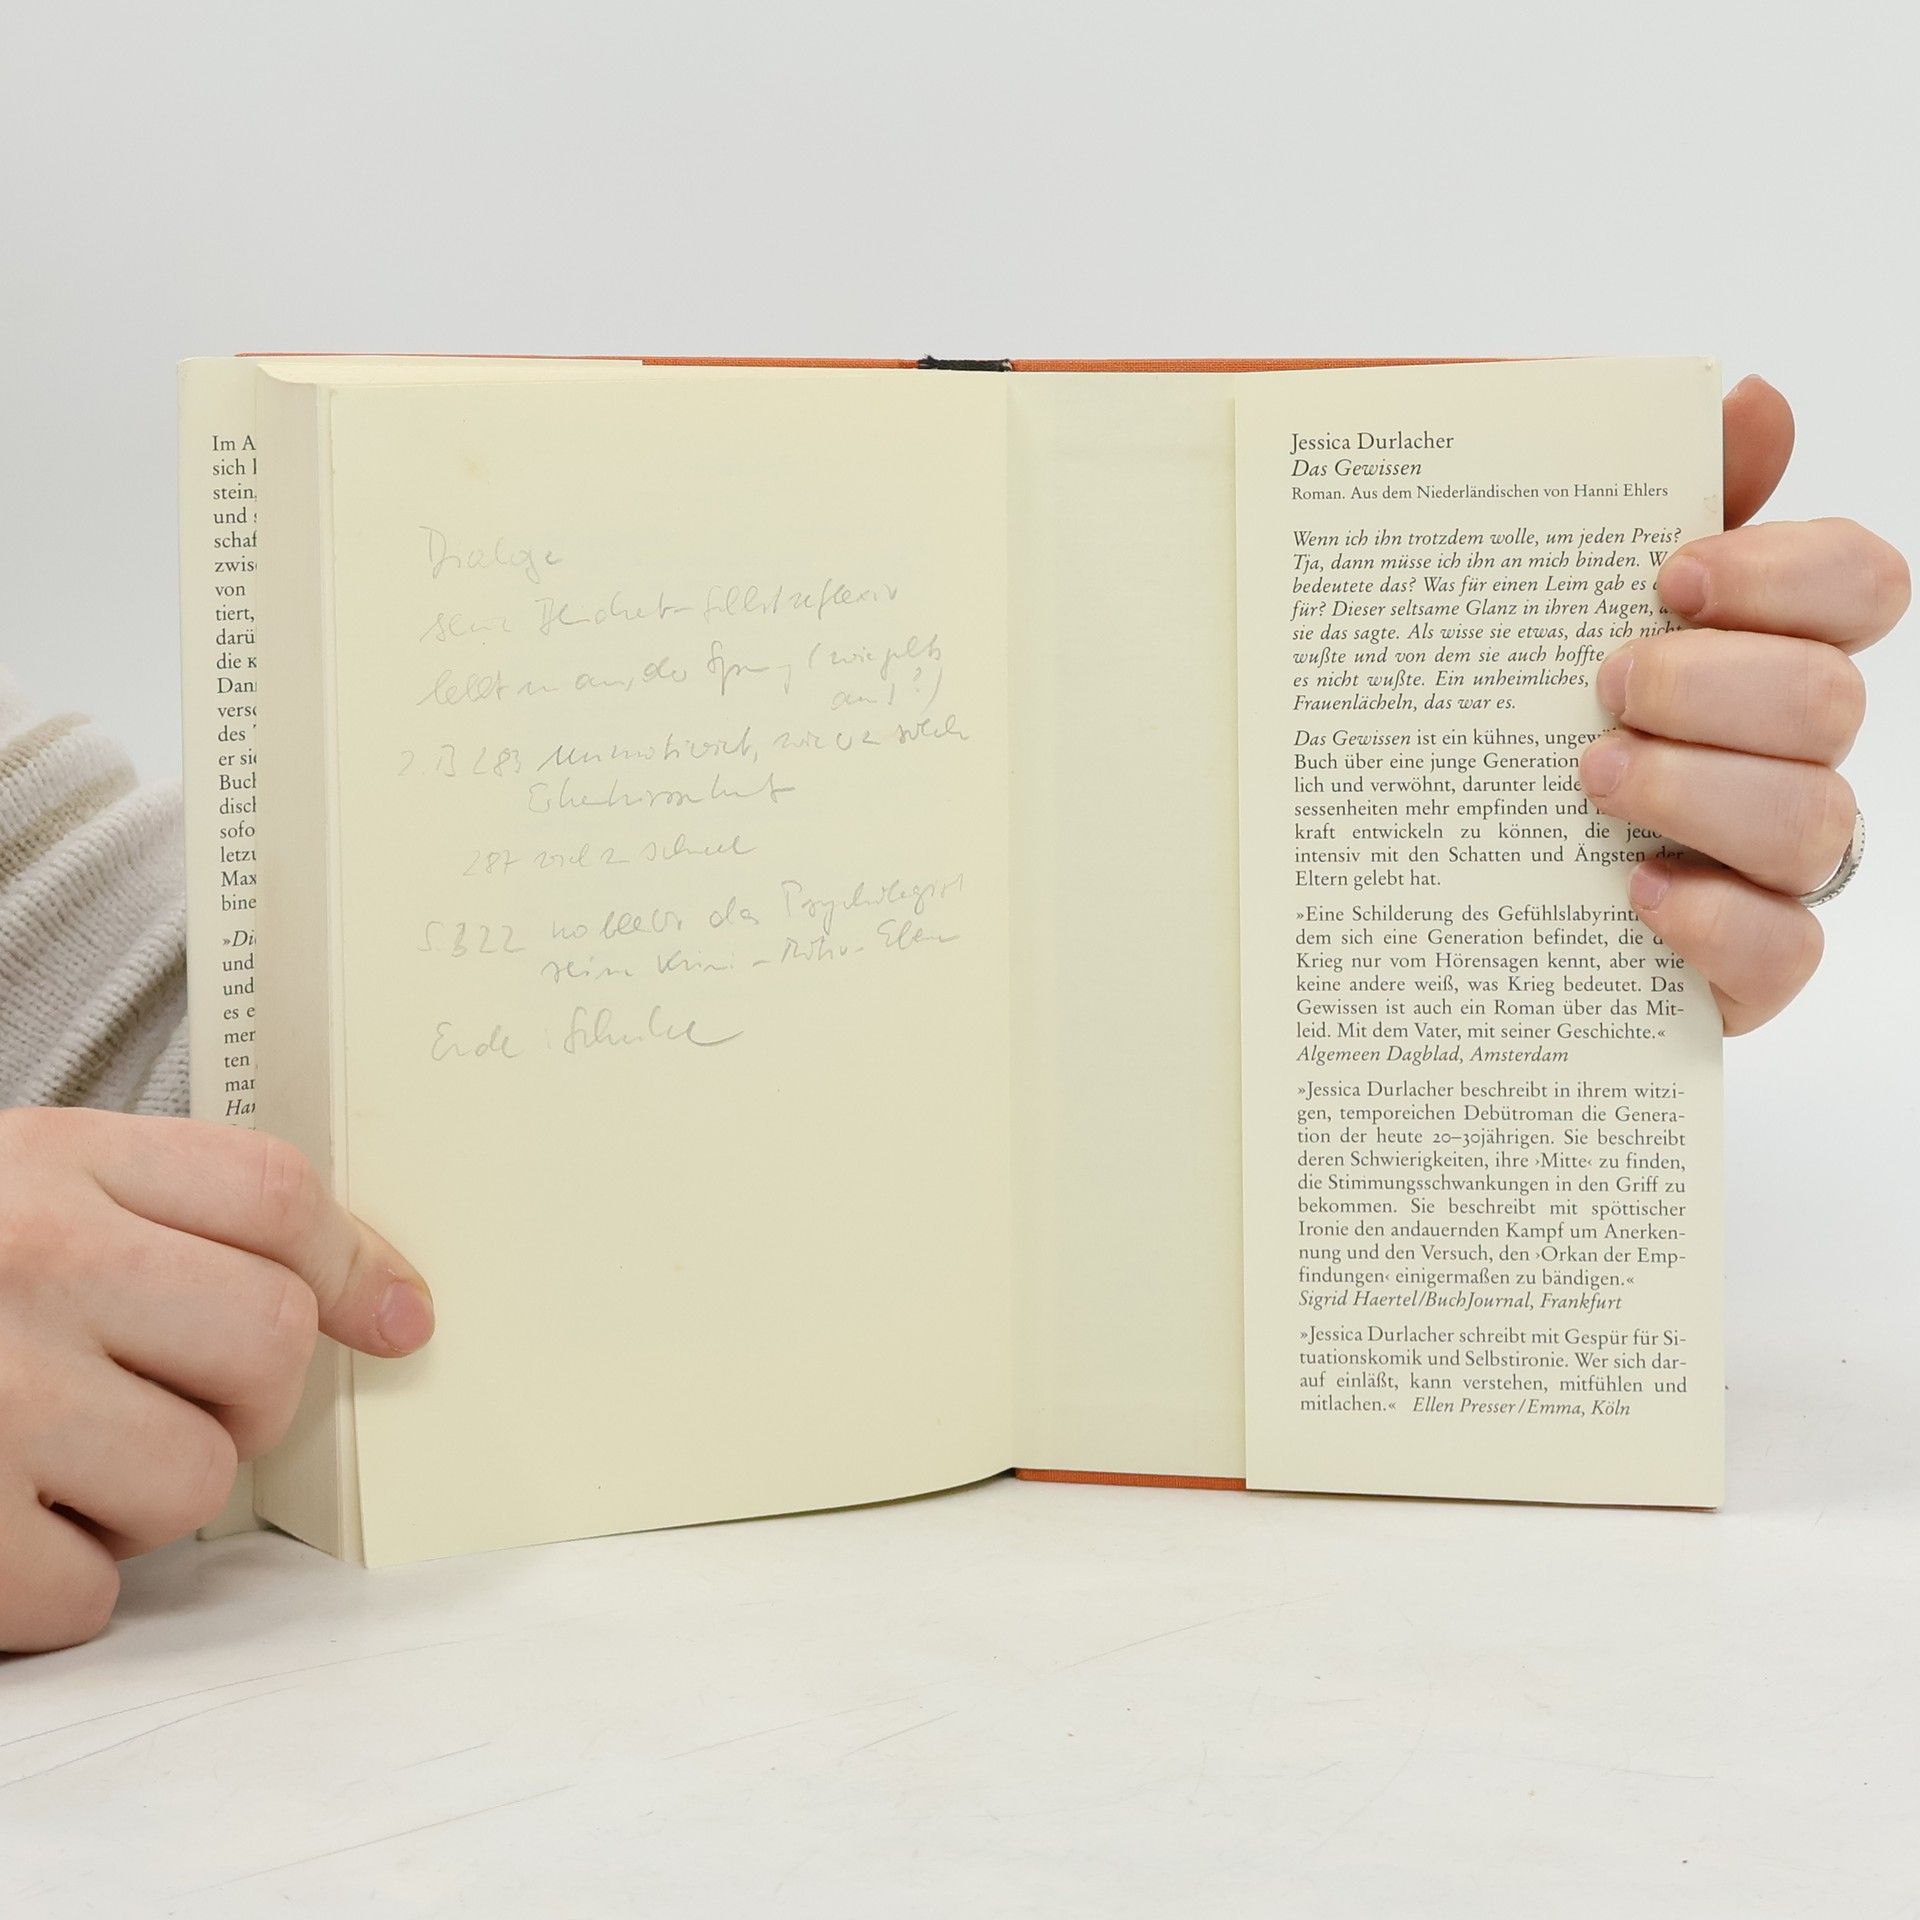 Im A
sich
stein,
und
schaf
zwis
von
tiert,
darü
die
Dan
vers
des
er si
Buc
disc
sofo
letz
Max
bine
»Di
und
und
es e
mer
ten
mar
Har
Dialoge
lebt
283 unmotiviert,
287
S. 322 wo bleibt der Psychologist
sein Krimi – Motiv –
Ende :
Jessica Durlacher
Das Gewissen
Roman. Aus dem Niederländischen von Hanni Ehlers
Wenn ich ihn trotzdem wolle, um jeden Preis?
Tja, dann müsse ich ihn an mich binden. W
bedeutete das? Was für einen Leim gab es
für? Dieser seltsame Glanz in ihren Augen,
sie das sagte. Als wisse sie etwas, das ich nicht
wußte und von dem sie auch hoffte
es nicht wußte. Ein unheimliches,
Frauenlächeln, das war es.
Das Gewissen ist ein kühnes, ungew
Buch über eine junge Generation
lich und verwöhnt, darunter leide
sessenheiten mehr empfinden und
kraft entwickeln zu können, die jedo
intensiv mit den Schatten und Ängsten der
Eltern gelebt hat.
»Eine Schilderung des Gefühlslabyrint
dem sich eine Generation befindet, die d
Krieg nur vom Hörensagen kennt, aber wie
keine andere weiß, was Krieg bedeutet. Das
Gewissen ist auch ein Roman über das Mit-
leid. Mit dem Vater, mit seiner Geschichte.«
Algemeen Dagblad, Amsterdam
»Jessica Durlacher beschreibt in ihrem witzi-
gen, temporeichen Debütroman die Genera-
tion der heute 20–30jährigen. Sie beschreibt
deren Schwierigkeiten, ihre ›Mitte‹ zu finden,
die Stimmungsschwankungen in den Griff zu
bekommen. Sie beschreibt mit spöttischer
Ironie den andauernden Kampf um Anerken-
nung und den Versuch, den ›Orkan der Emp-
findungen‹ einigermaßen zu bändigen.«
Sigrid Haertel/BuchJournal, Frankfurt
»Jessica Durlacher schreibt mit Gespür für Si-
tuationskomik und Selbstironie. Wer sich dar-
auf einläßt, kann verstehen, mitfühlen und
mitlachen.« Ellen Presser/Emma, Köln